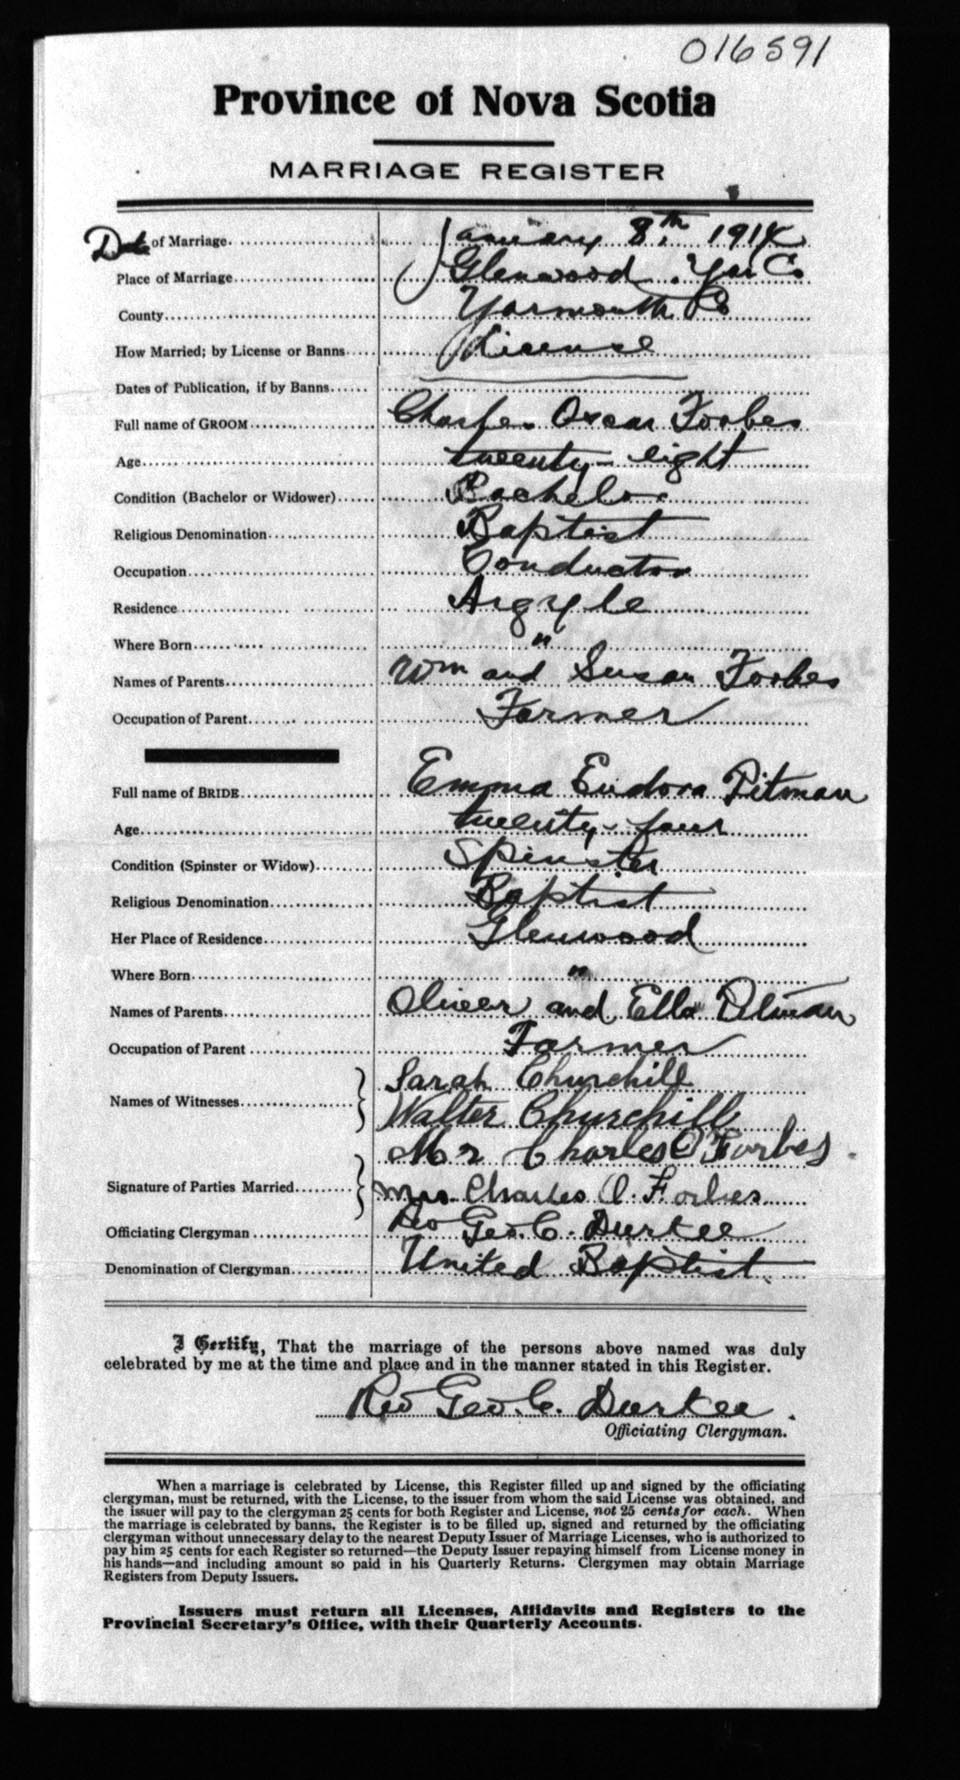 016591
Province of Nova Scotia
MARRIAGE REGISTER
Date of Marriage January 8th 1914
Place of Marriage Glenwood. Yar Co
County Yarmouth Co
How Married; by License or Banns License
Dates of Publication, if by Banns
Full name of GROOM Charles Oscar Forbes
Age twenty-eight
Condition (Bachelor or Widower) Bachelor
Religious Denomination Baptist
Occupation Conductor
Residence Argyle
Where Born "
Names of Parents Wm and Susan Forbes
Occupation of Parent Farmer
Full name of BRIDE Emma Eudora Pitman
Age twenty-four
Condition (Spinster or Widow) Spinster
Religious Denomination Baptist
Her Place of Residence Glenwood
Where Born "
Names of Parents Oliver and Ella Pitman
Occupation of Parent Farmer
Sarah Churchill
Names of Witnesses Walter Churchill
Mr Charles O Forbes.
Signature of Parties Married Mrs. Charles O. Forbes
Officiating Clergyman Rev Geo. C. Durkee
Denomination of Clergyman United Baptist.
I Certify, That the marriage of the persons above named was duly
celebrated by me at the time and place and in the manner stated in this Register.
Rev Geo. C. Durkee.
Officiating Clergyman.
When a marriage is celebrated by License, this Register filled up and signed by the officiating
clergyman, must be returned, with the License, to the issuer from whom the said License was obtained, and
the issuer will pay to the clergyman 25 cents for both Register and License, not 25 cents for each. When
the marriage is celebrated by banns, the Register is to be filled up, signed and returned by the officiating
clergyman without unnecessary delay to the nearest Deputy Issuer of Marriage Licenses, who is authorized to
pay him 25 cents for each Register so returned—the Deputy Issuer repaying himself from License money in
his hands—and including amount so paid in his Quarterly Returns. Clergymen may obtain Marriage
Registers from Deputy Issuers.
Issuers must return all Licenses, Affidavits and Registers to the
Provincial Secretary's Office, with their Quarterly Accounts.